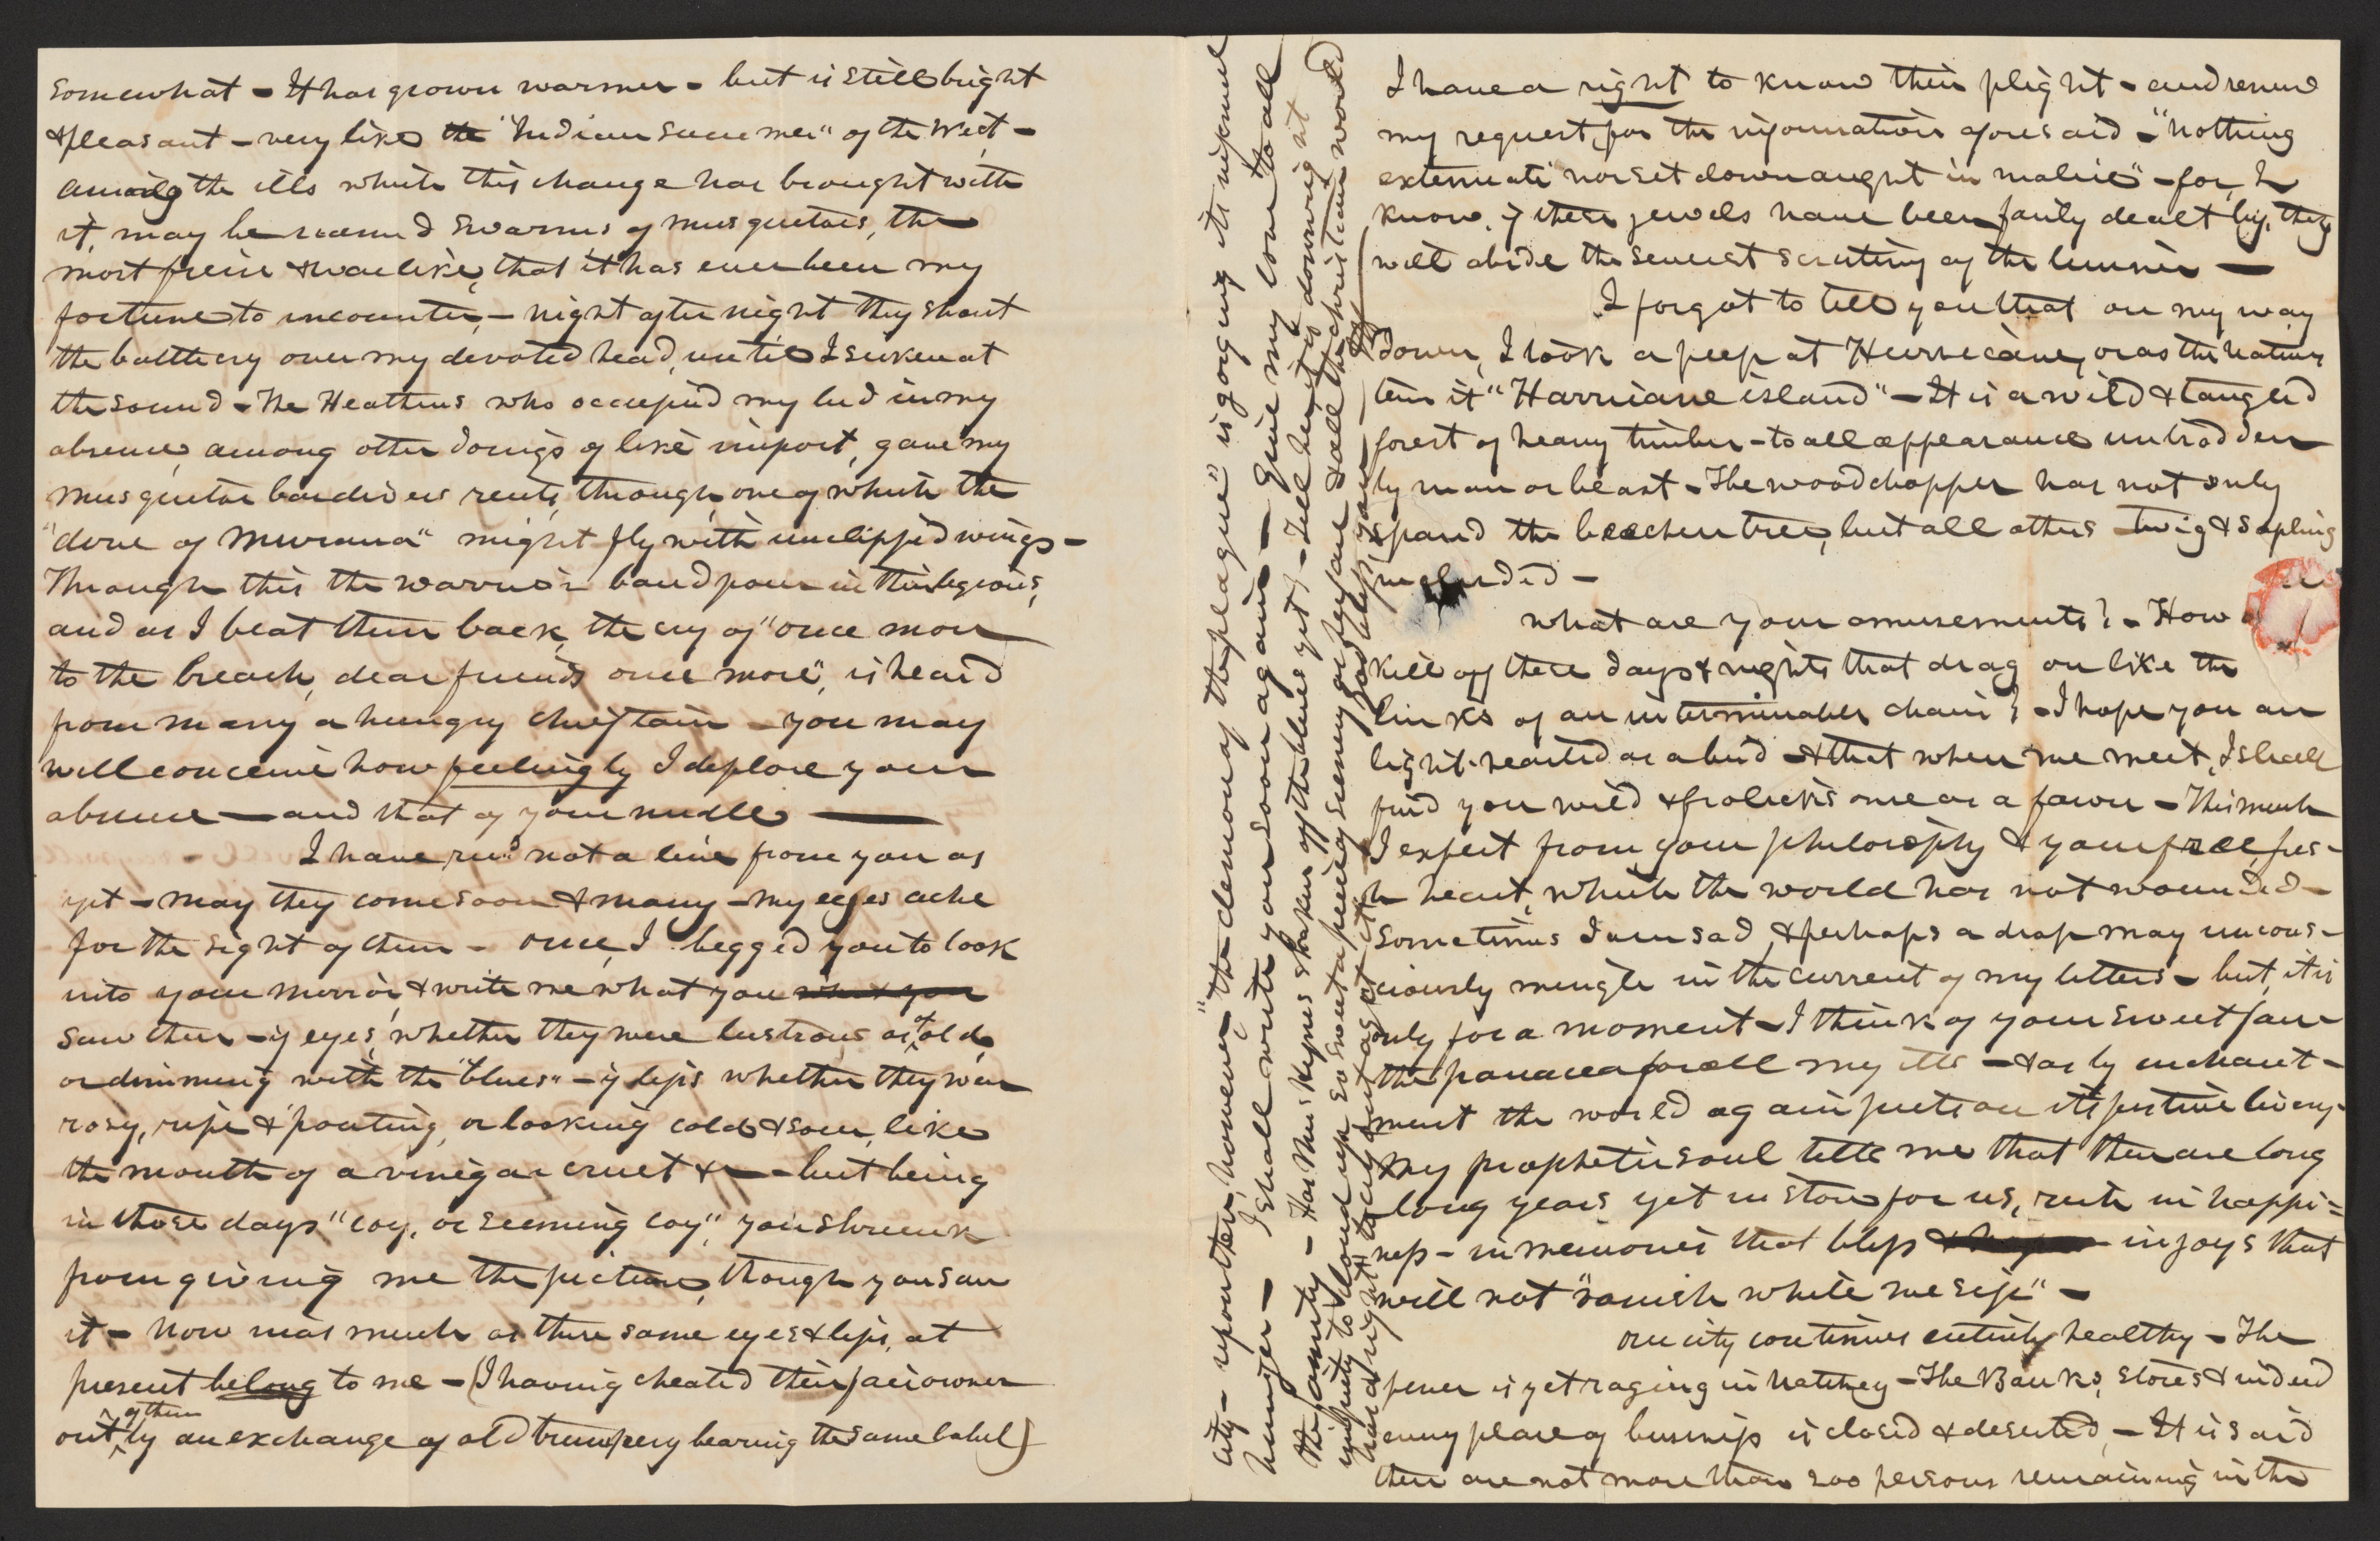 somewhat - It has grown warmer - but is still bright
& pleasant - very like the "Indian summer" of the West -
among the ills which this change has brought with
it, may be swarms of musquetoes, the
most fierce & warlike, that it has ever been my
fortune to encounter, - night after night they shout
the battle cry over my devoted head, until I sicken at
the sound - The Heathens who occupied my bed in my
absence, among other doings of like import, gave my
musquetoe bar divers rents, through one of which the
"dove of" might fly with unclipped wings -
Through this the warrior band pour in their legions,
and as I beat them back, the cry of "once more
to the breach, dear friends once more", is heard
from many a hungry chieftain - you may
well conceive how feelingly I deplore your
absence - and that of your needle -
I have recd not a line from you as
yet - may they come soon & many - my eyes ache
for the sight of them - once, I begged you to look
into your mirror, & write me what you what you
saw there - if eyes, whether they were lustrous as of old,
or dimming with the "blues" - if lips whether they were
rosy, ripe & pouting, or looking cold & sour, like
the mouth of a vinegar cruet & - but being
in those days "coy, or seeming coy", you shrunk
from giving me the picture, though you saw
it - Now inas much as those same eyes & lips, at
present belong to me - (I having cheated their fair owner
out of them by an exchange of old trumpery bearing the same label)
I have a right to know their plight - and renew
my request, for the information aforesaid - "nothing
extenuate nor set down aught in malice" - for, I
know, if these jewels have been fairly dealt by, they
will abide the severest scrutiny of the
I forgot to tell you that on my way
down, I took a peep at Hurricane, or as the natives
term it "Harricane island" - It is a wild & tangled
forest of heavy timber - to all appearance untrodden
by man or beast - The woodchopper has not only
spared the beechen tree, but all others twig & sapling
included -
What are your amusements? - How
kill off these days & nights that drag on like the
links of an interminable chain? - I hope you are
light-hearted as a bird - & that when we meet, I shall
find you wild & frolicksome as a fawn - This much
I expect from your philosophy & your free, fres-
h heart, which the world has not wounded -
Sometimes I am sad, & perhaps a drop may uncons-
ciously mingle in the current of my letters - but, it is
only for a moment - I think of your sweet face
the panacea for all my ills - & as by enchant-
ment the world again puts on its festive livery -
My prophetic soul tells me that there are long
long years yet in store for us, rich in happi=
ness - in memories that bless in joys that
will not "vanish while we sip" -
Our city continues entirely healthy - The
fever is yet raging in Natchez - The Banks, stores & indeed
every place of business is closed & deserted, - It is said
there are not more than 200 persons remaining in the
city - report then, however, "the demon of the plague" is gorging its infernal
hunger - I shall write you soon again - Give my love to all
the family - Has Miss Kyrus shaken off the blues yet? - Tell her it is downright
impiety to cloud up so sweet a piece of scenery as her face & all the christian world
has a right to cry out against it - God bless you -